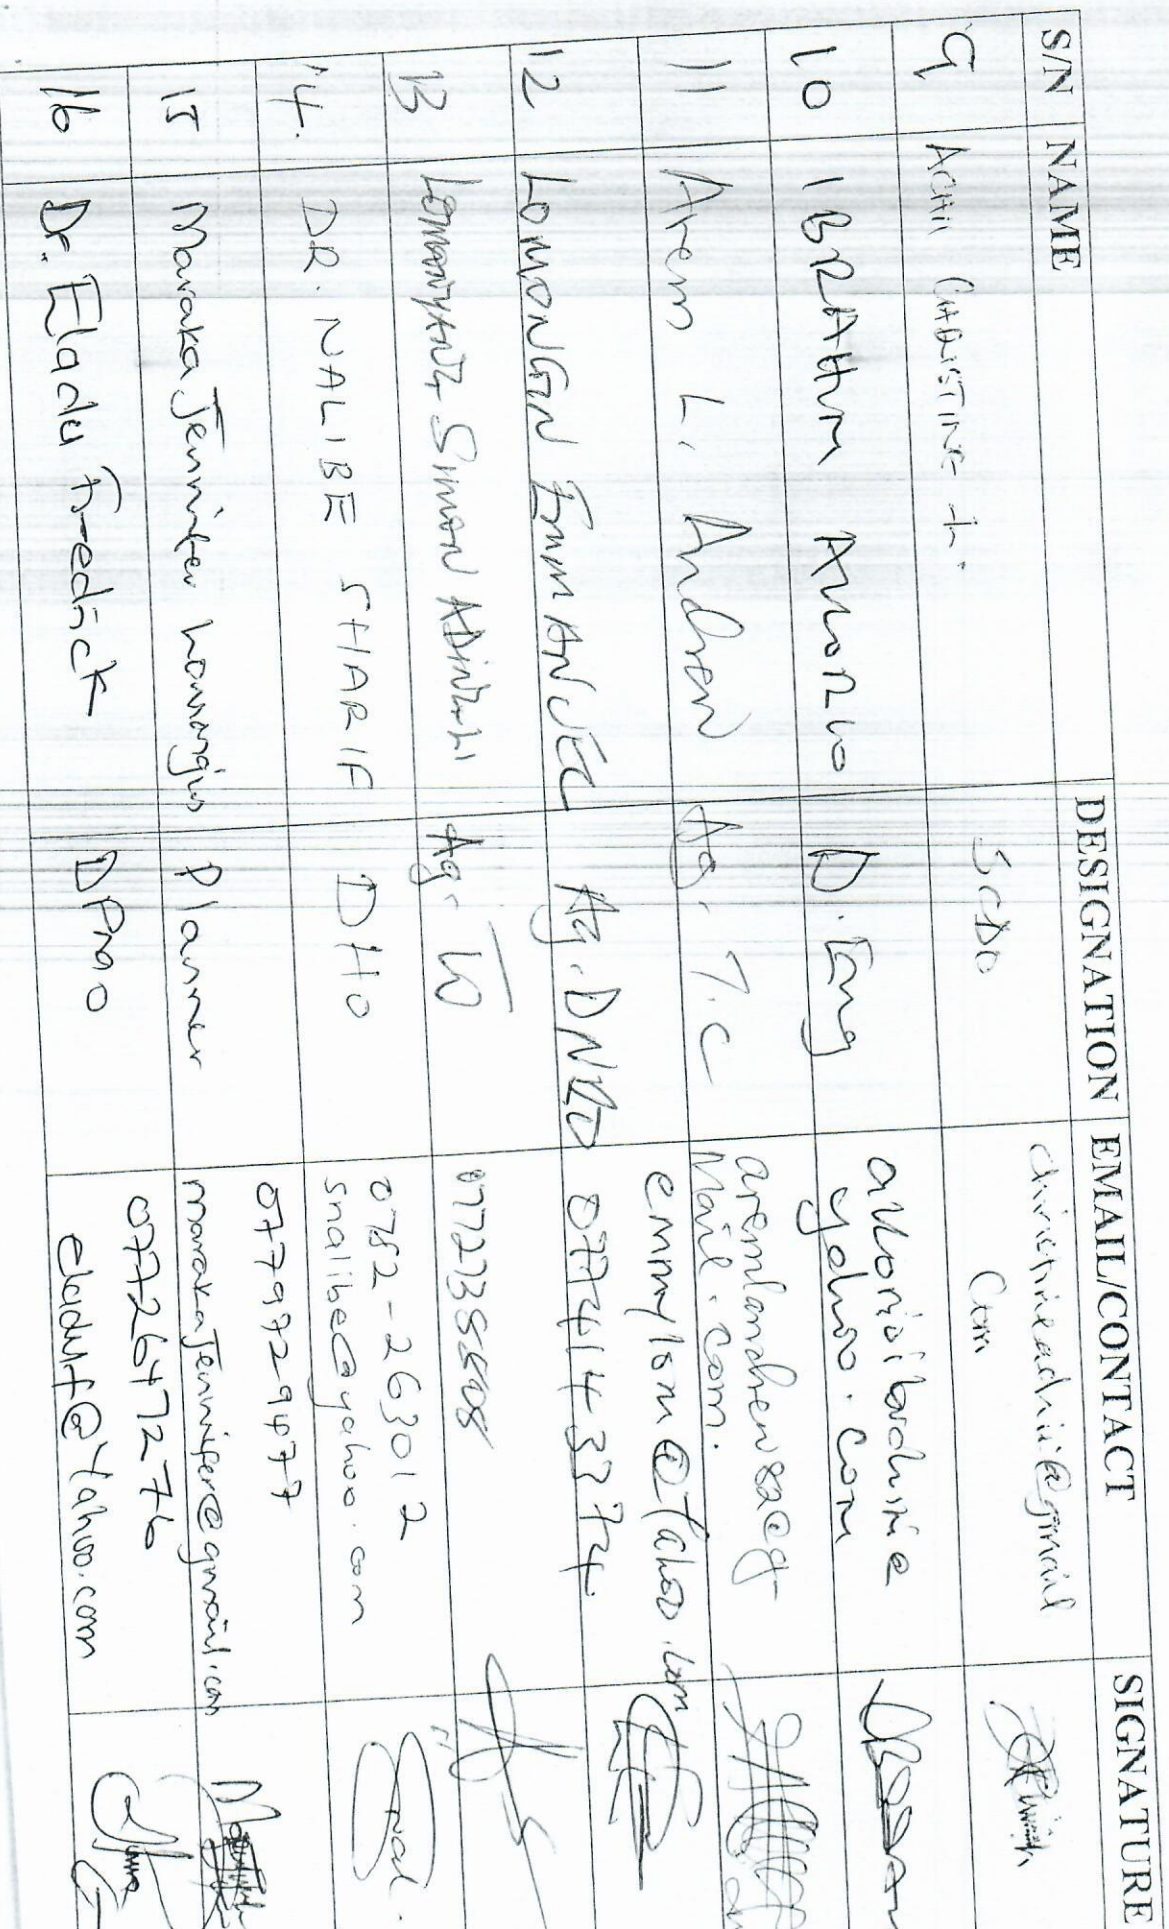 S/N NAME DESIGNATION EMAIL/CONTACT SIGNATURE
9 ACHII CHRISTINE L. SCDO christineachii@gmail
Com
10 IBRAHIM AKORIO D. Eng akorioibrahim@
yahoo.com
11 Arem L. Andrew Ag. T.C aremlandrew82@g
Mail.com.
12 LOMONGIN EMMANUEL Ag. DNRO emmylom@Yahoo.com
0774143374
13 SIMON Ag.
14. DR. NALIBE SHARIF DHO 0782-263012
snalibe@yahoo.com
15 Maraka Jennifer Planner 0779729477
marakajennifer@gmail.com
16 Dr. Eladu Fredrick DPMO 0772647276
eladuf@Yahoo.com